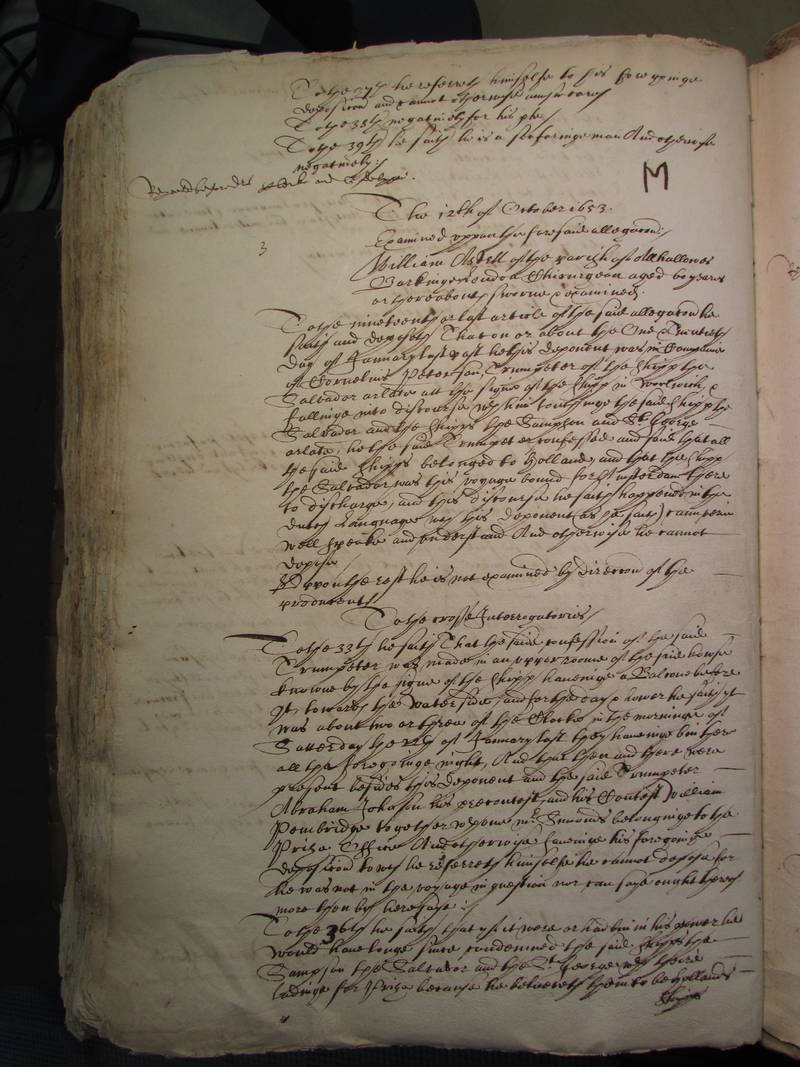 To the 37th he referreth himselfe to his foregoinge
deposicion and cannot otherwise answer
To the 38th negatively for his p̃te
To the 39th he saith he is a seafaringe man And otherwise
negatively
M
The 12th of October 1653.
3
Examined upon the foresaid allegacon
William of the parish of Allhallowes
Barkinge London Chirurgeon aged 60 yeares
or thereabouts sworne & examined
To the nineteenth or last article of the said allegacon he
saith and deposeth That on or about the One & Twentieth
day of January last past he this deponent was in companie
of Cornelius Peterson Trumpeter of the shipp the
Salvador arlate att the signe of the Shipp in Woolwich, &
fallinge into discourse with him touchinge the said shipp the
Salvador and the shipps the Sampson and St. George
arlate, he the said Trumpeter confessed and said that all
the said shipps belonged to Holland and that the shipp
the Salvador was this voyage bound for Amsterdam there
to discharge, and this discourse he saith happened in the
dutch Language wch this deponent (as he saith) can verie
well speake and understand And otherwise he cannot
depose
Upon the rest he is not examined by direccon of the
producent
To the crosse Interrogatories
To the 33th he saith That the said confession of the said
Trumpeter was made in an upper roome of the said howse
knowne by the signe of the Shipp haveinge a Balcone before
it towards the water side, and for the day & hower he saith yt
was about two or three of the Clocke in the morninge of
Satterday the 22th of January last they haveinge bin there
all the foregoinge night, And that then and there were
present besides this deponent and the said Trumpeter
Abraham Johnson his precontest, and his Contest William
Pembridge together with one mr Symonds belonginge to the
Prize Office And otherwise saveinge his foregoinge
deposicion to wch he referreth himselfe he cannot depose for
he was not in the voyage in question nor can saye ought therof
more then by heresaye
To the 36th he saith that yf it were or had bin in his power he
would have longe since condemned the said shipps the
Sampson the Salvador and the St. George with theire
ladinge for Prize because he beleeveth them to be hollands
shipps